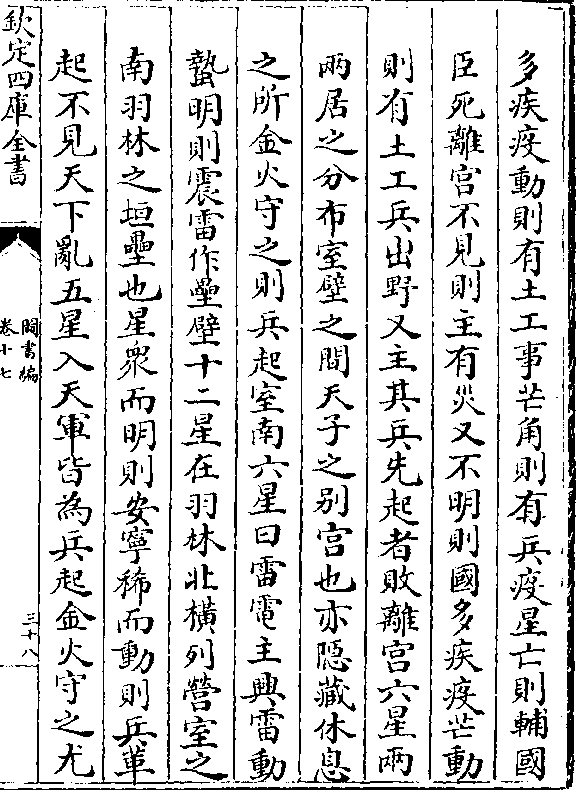 多疾疫動則有土工事芒角則有兵疫星亡則輔國
臣死離宮不見則主有災又不明則國多疾疫芒動
則有土工兵出野又主其兵先起者敗離宮六星兩
兩居之分布室壁之間天子之别宮也亦隱藏休息
之所金火守之則兵起室南六星曰雷電主興雷動
蟄明則震雷作壘壁十二星在羽林北橫列營室之
南羽林之垣壘也星衆而明則安寧稀而動則兵革
起不見天下亂五星入天軍皆為兵起金火守之尤
欽定四庫全書
圖書編
卷十七
三十八